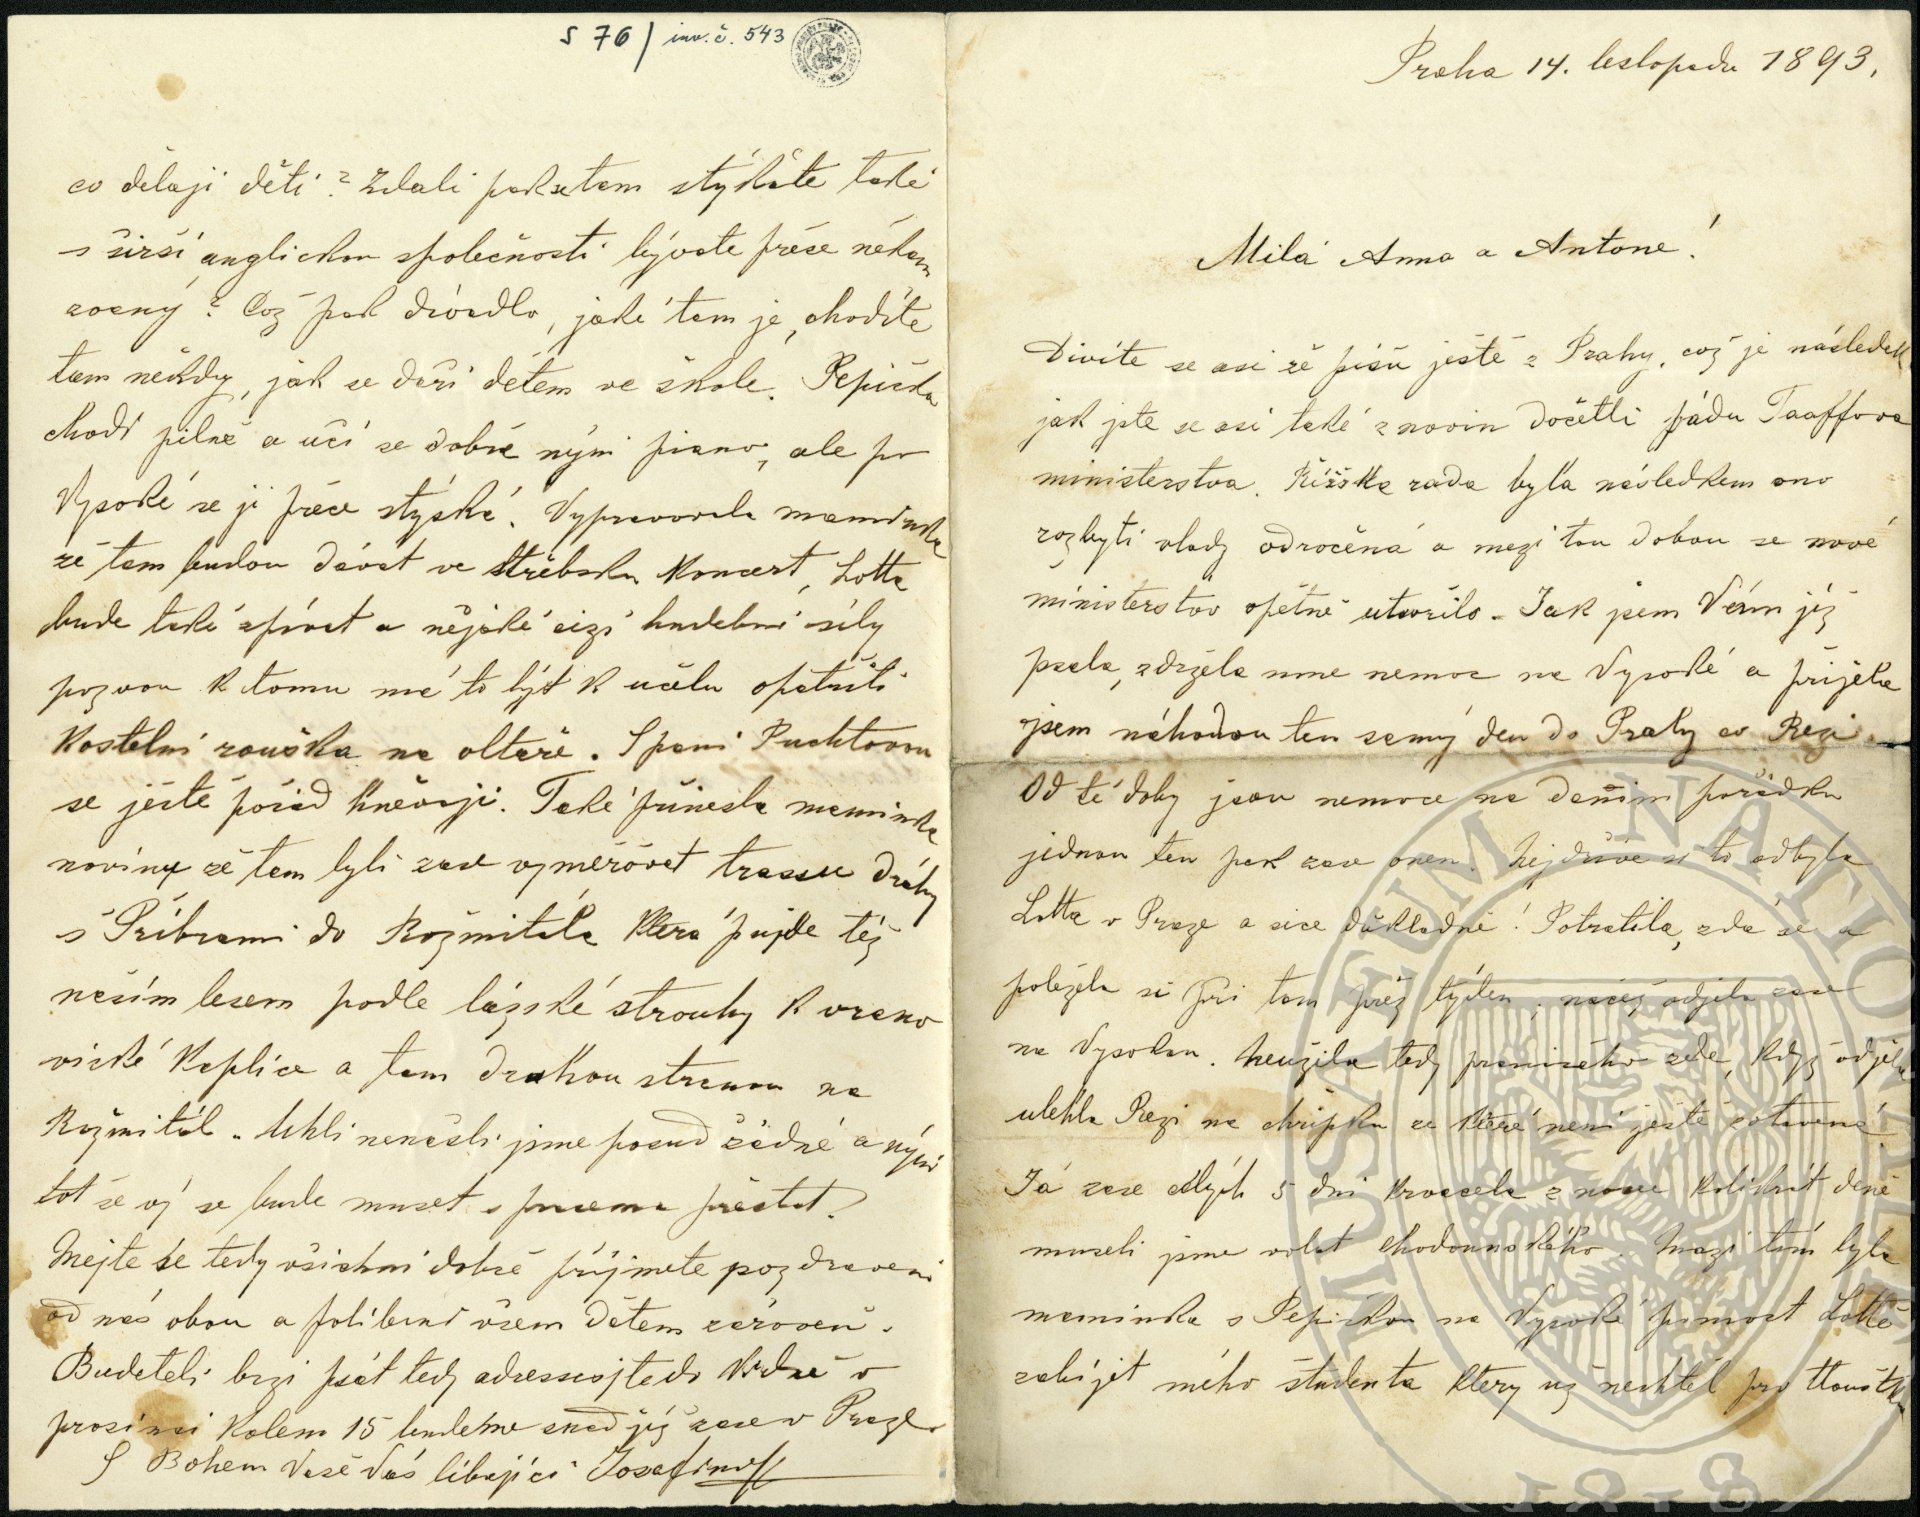 Praha 14. listopadu 1893.
Milá Anna a Antone!
Divíte se asi že píšu ještě z Prahy, což je následek
jak jste se asi také z novin dočetli pádu Taaffova
ministerstva. Říšska rada byla následkem ono
rozbytí vlady odročená a mezi tou dobou se nové
ministerstvo opětně utvořilo. Jak jsem Vám již
psala, zdržela mne nemoc na Vysoké a přijela
jsem náhodou ten samý den do Prahy co Rezi.
Od té doby jsou nemoce na denim pořádku
jednou ten pak zase onen. Nejdříve si to odbyla
Lotta v Praze a sice důkladně! Potratila, zdá se a
poležela si při tom přez týden, načež odjela zase
na Vysokou. Neužila tedy pranického zde, když odjela
ulehla Rezi na chřipku ze které není ještě zotavená
Já zase celých 5 dní krvacela z nosu kolikrát deně
museli jsme volat Chodounského. Mezi tím byla
maminka s Pepičkou na Vysoké pomoct Lottě
zabíjet mého študenta který už nechtěl pro tloušťku
S 76/ inv. č. 543
co dělaji děti? Zdali pak se tam stýkáte také
s širší anglickou společnosti bývate přese někam
zvaný? Což pak divadlo, jaké tam je, chodíte
tam někdy, jak se daří dětem ve škole. Pepička
chodí pilně a učí se dobře nyni piano, ale po
Vysoké se ji přece stýská. Vypravovala maminka
že tam budou dávat ve Střebsku Koncert, Lotta
bude také zpívat a nějaké cizí hudebni síly
pozvou k tomu má to být k učelu opatřiti
Kostelní rouška na oltaře. S paní Puchtovou
se ještě pořád hněvaji. Také přinesla maminka
noviny že tam byli zase vyměřovat trassu dráhy
s Příbrami do Rožmitála která pujde též
naším lesem podle lázské strouhy k vrano
vické Kaplice a tam drahou stranou na
Rožmitál. Uhli nenašli jsme posud žádné a nýni
tot se ví se bude muset s pracema přestat.
Mějte se tedy všichni dobře přijmete pozdraveni
od nás obou a polibení všem dětem zároveň.
Budeteli brzi psát tedy adressujte do Vídně v
prosinci kolem 15 budeme snad již zase v Praze.
S Bohem Vaše Vás líbající Josefina